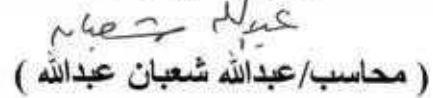 عبدالله شعبان
( محاسب/عبدالله شعبان عبدالله )